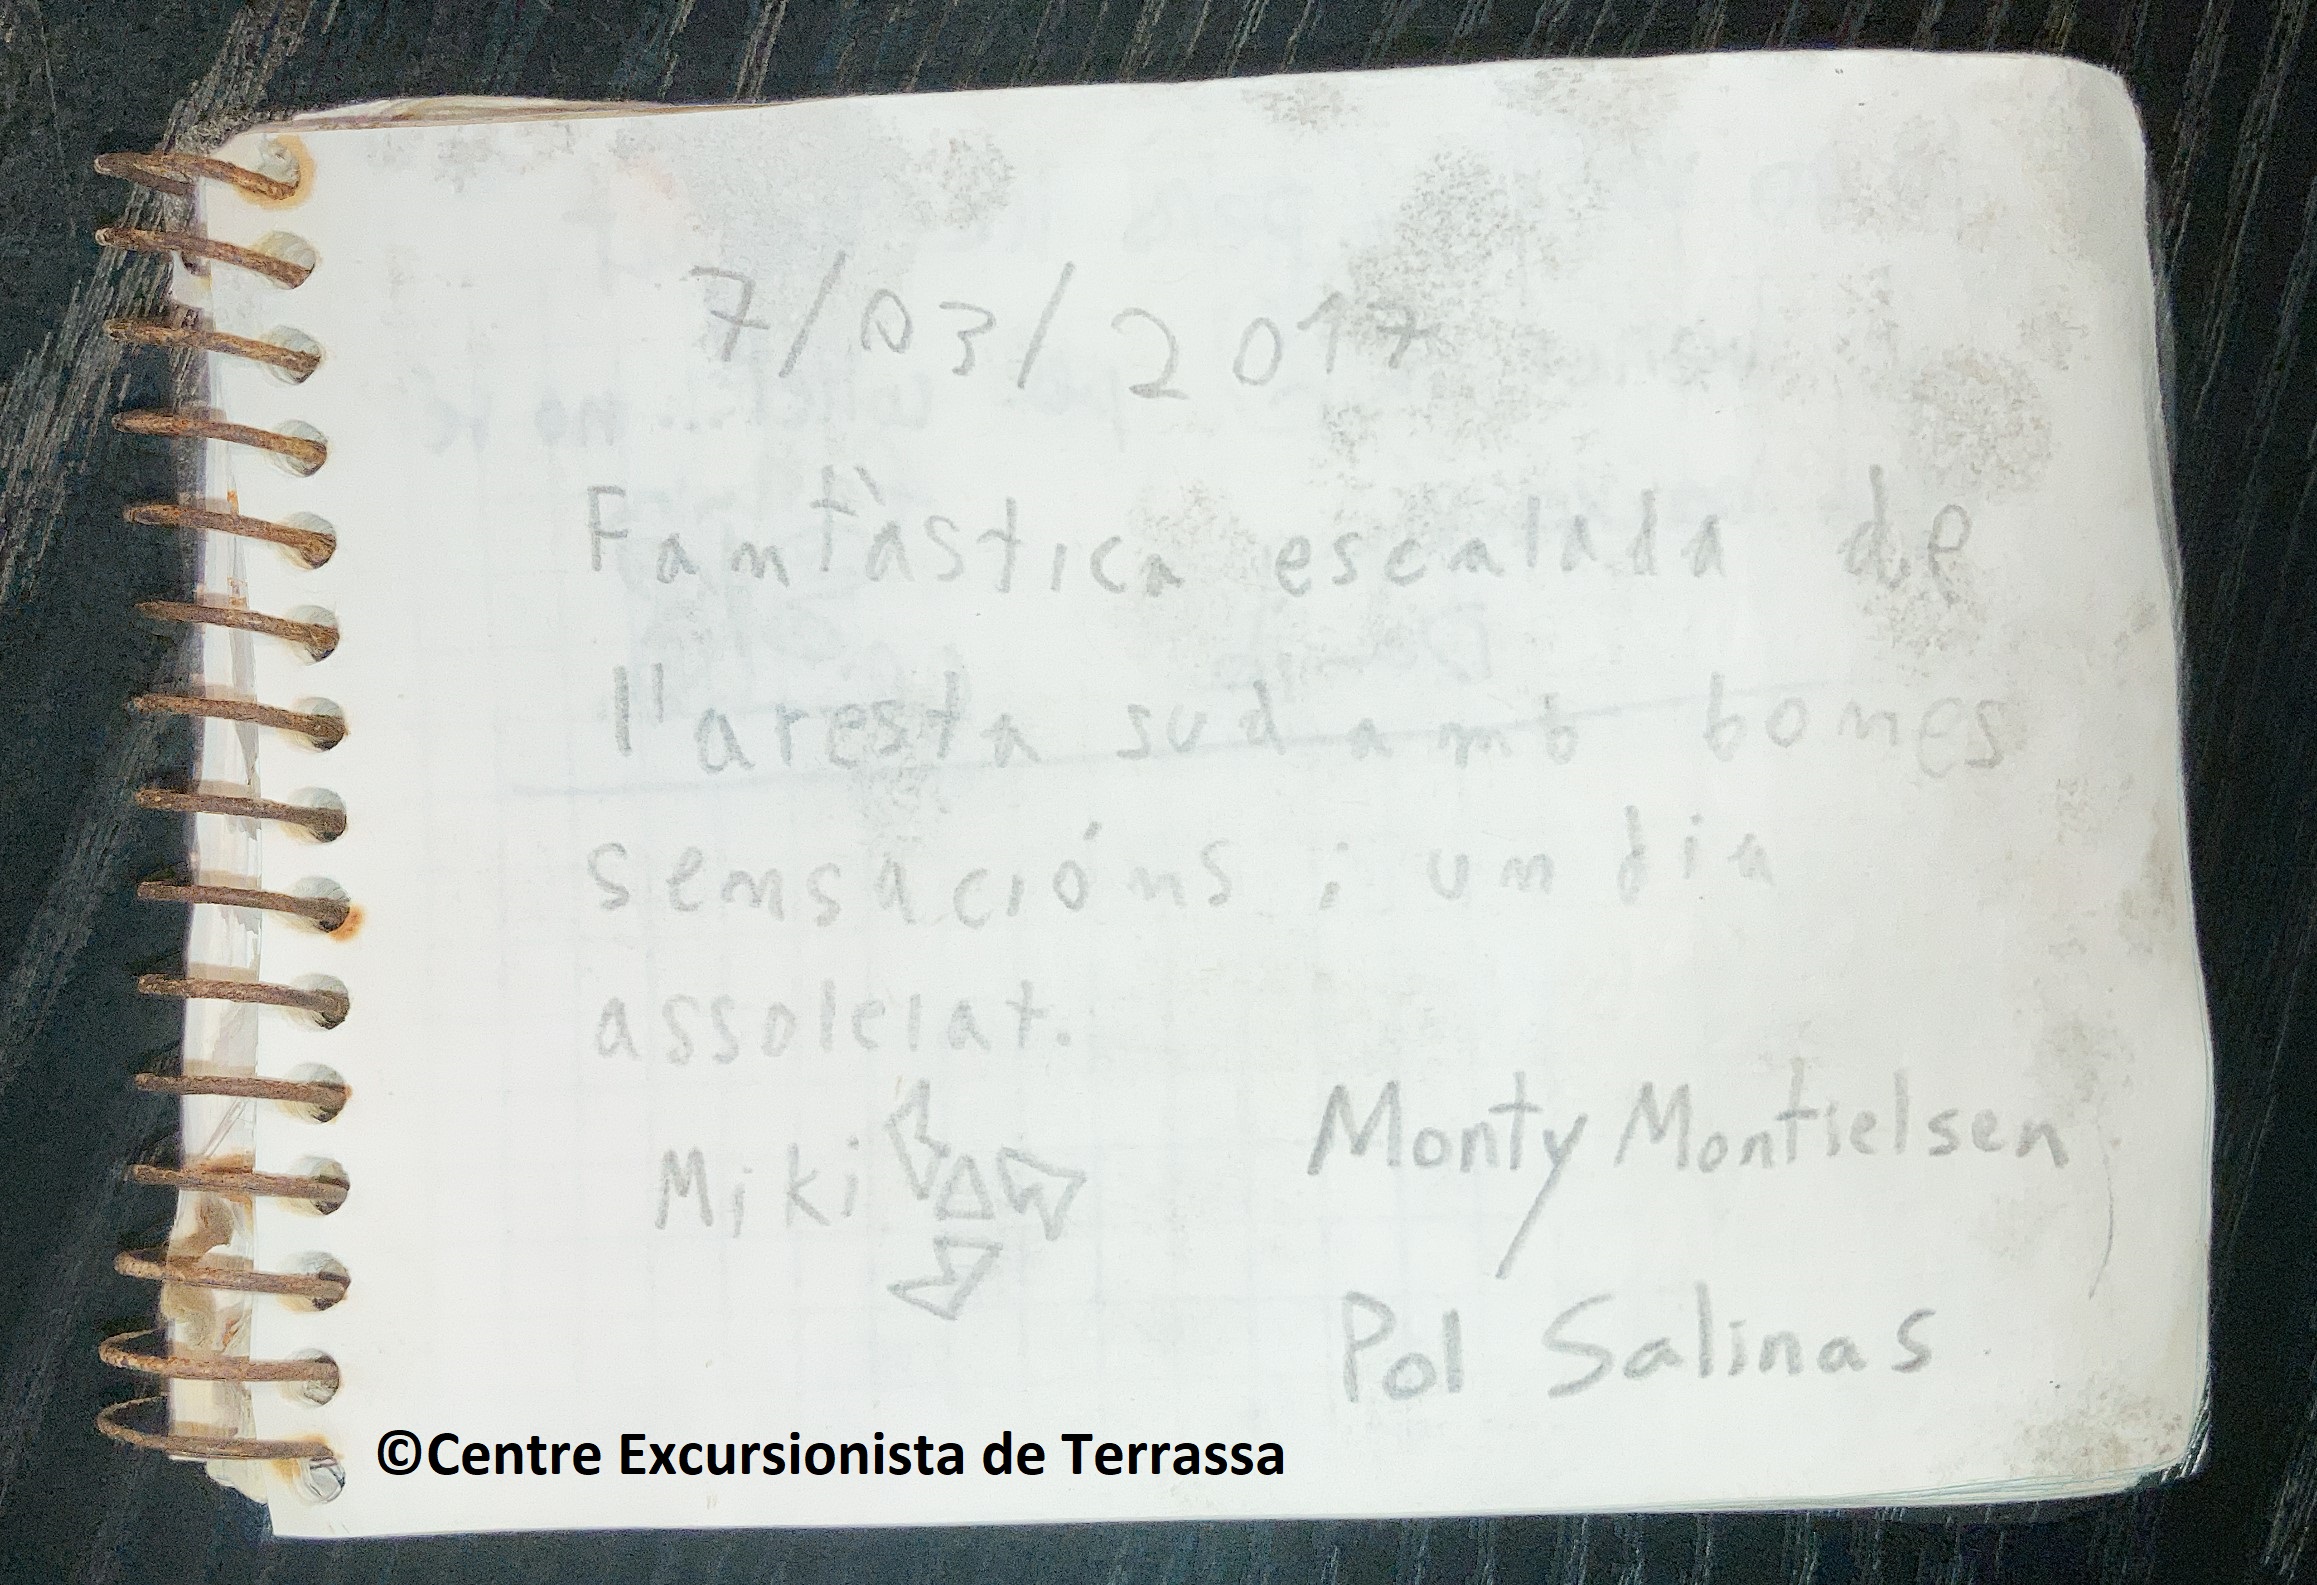 7/03/2017
Fantàstica escalada de
l'aresta sud amb bones
sensacións i un dia
assoleiat.
Miki
Monty Montielsen
Pol Salinas
©Centre Excursionista de Terrassa